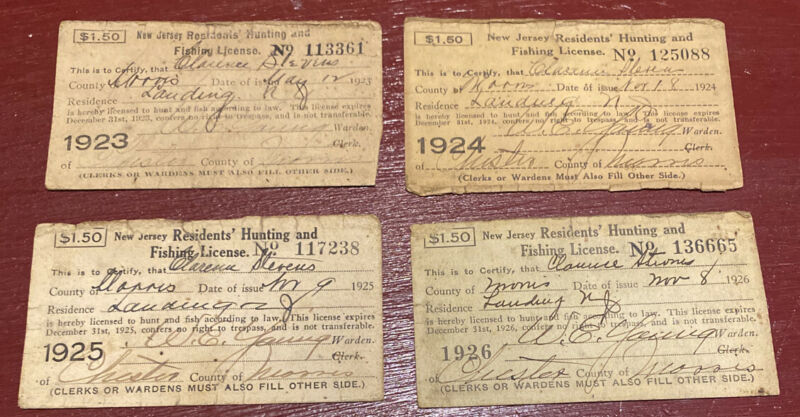 $1.50 New Jersey Residents' Hunting and
Fishing License. No 113361
This is to Certify, that Clarence Stevens
County of Morris Date of issue May 12 1923
Residence Landing N J
is hereby licensed to hunt and fish according to law. This license expires
December 31st, 1923, confers no right to trespass, and is not transferable.
1923 W. E. Young Warden.
Clerk.
of Chester County of Morris
(CLERKS OR WARDENS MUST ALSO FILL OTHER SIDE.)
$1.50 New Jersey Residents' Hunting and
Fishing License. No 125088
This is to Certify, that Clarence Stevens
County of Morris Date of issue Nov 8 1924
Residence Landing N J
is hereby licensed to hunt and fish according to law. This license expires
December 31st, 1924, confers no right to trespass, and is not transferable.
1924 W. E. Young Warden.
Clerk.
of Chester County of Morris
(Clerks or Wardens Must Also Fill Other Side.)
$1.50 New Jersey Residents' Hunting and
Fishing License. No 117238
This is to Certify, that Clarence Stevens
County of Morris Date of issue Nov 9 1925
Residence Landing N J
is hereby licensed to hunt and fish according to law. This license expires
December 31st, 1925, confers no right to trespass, and is not transferable.
1925 W. E. Young Warden.
Clerk.
of Chester County of Morris
(CLERKS OR WARDENS MUST ALSO FILL OTHER SIDE.)
$1.50 New Jersey Residents' Hunting and
Fishing License. No 136665
This is to Certify, that Clarence Stevens
County of Morris Date of issue Nov 8 1926
Residence Landing N J
is hereby licensed to hunt and fish according to law. This license expires
December 31st, 1926, confers no right to trespass, and is not transferable.
1926 W. E. Young Warden.
Clerk.
of Chester County of Morris
(CLERKS OR WARDENS MUST ALSO FILL OTHER SIDE.)